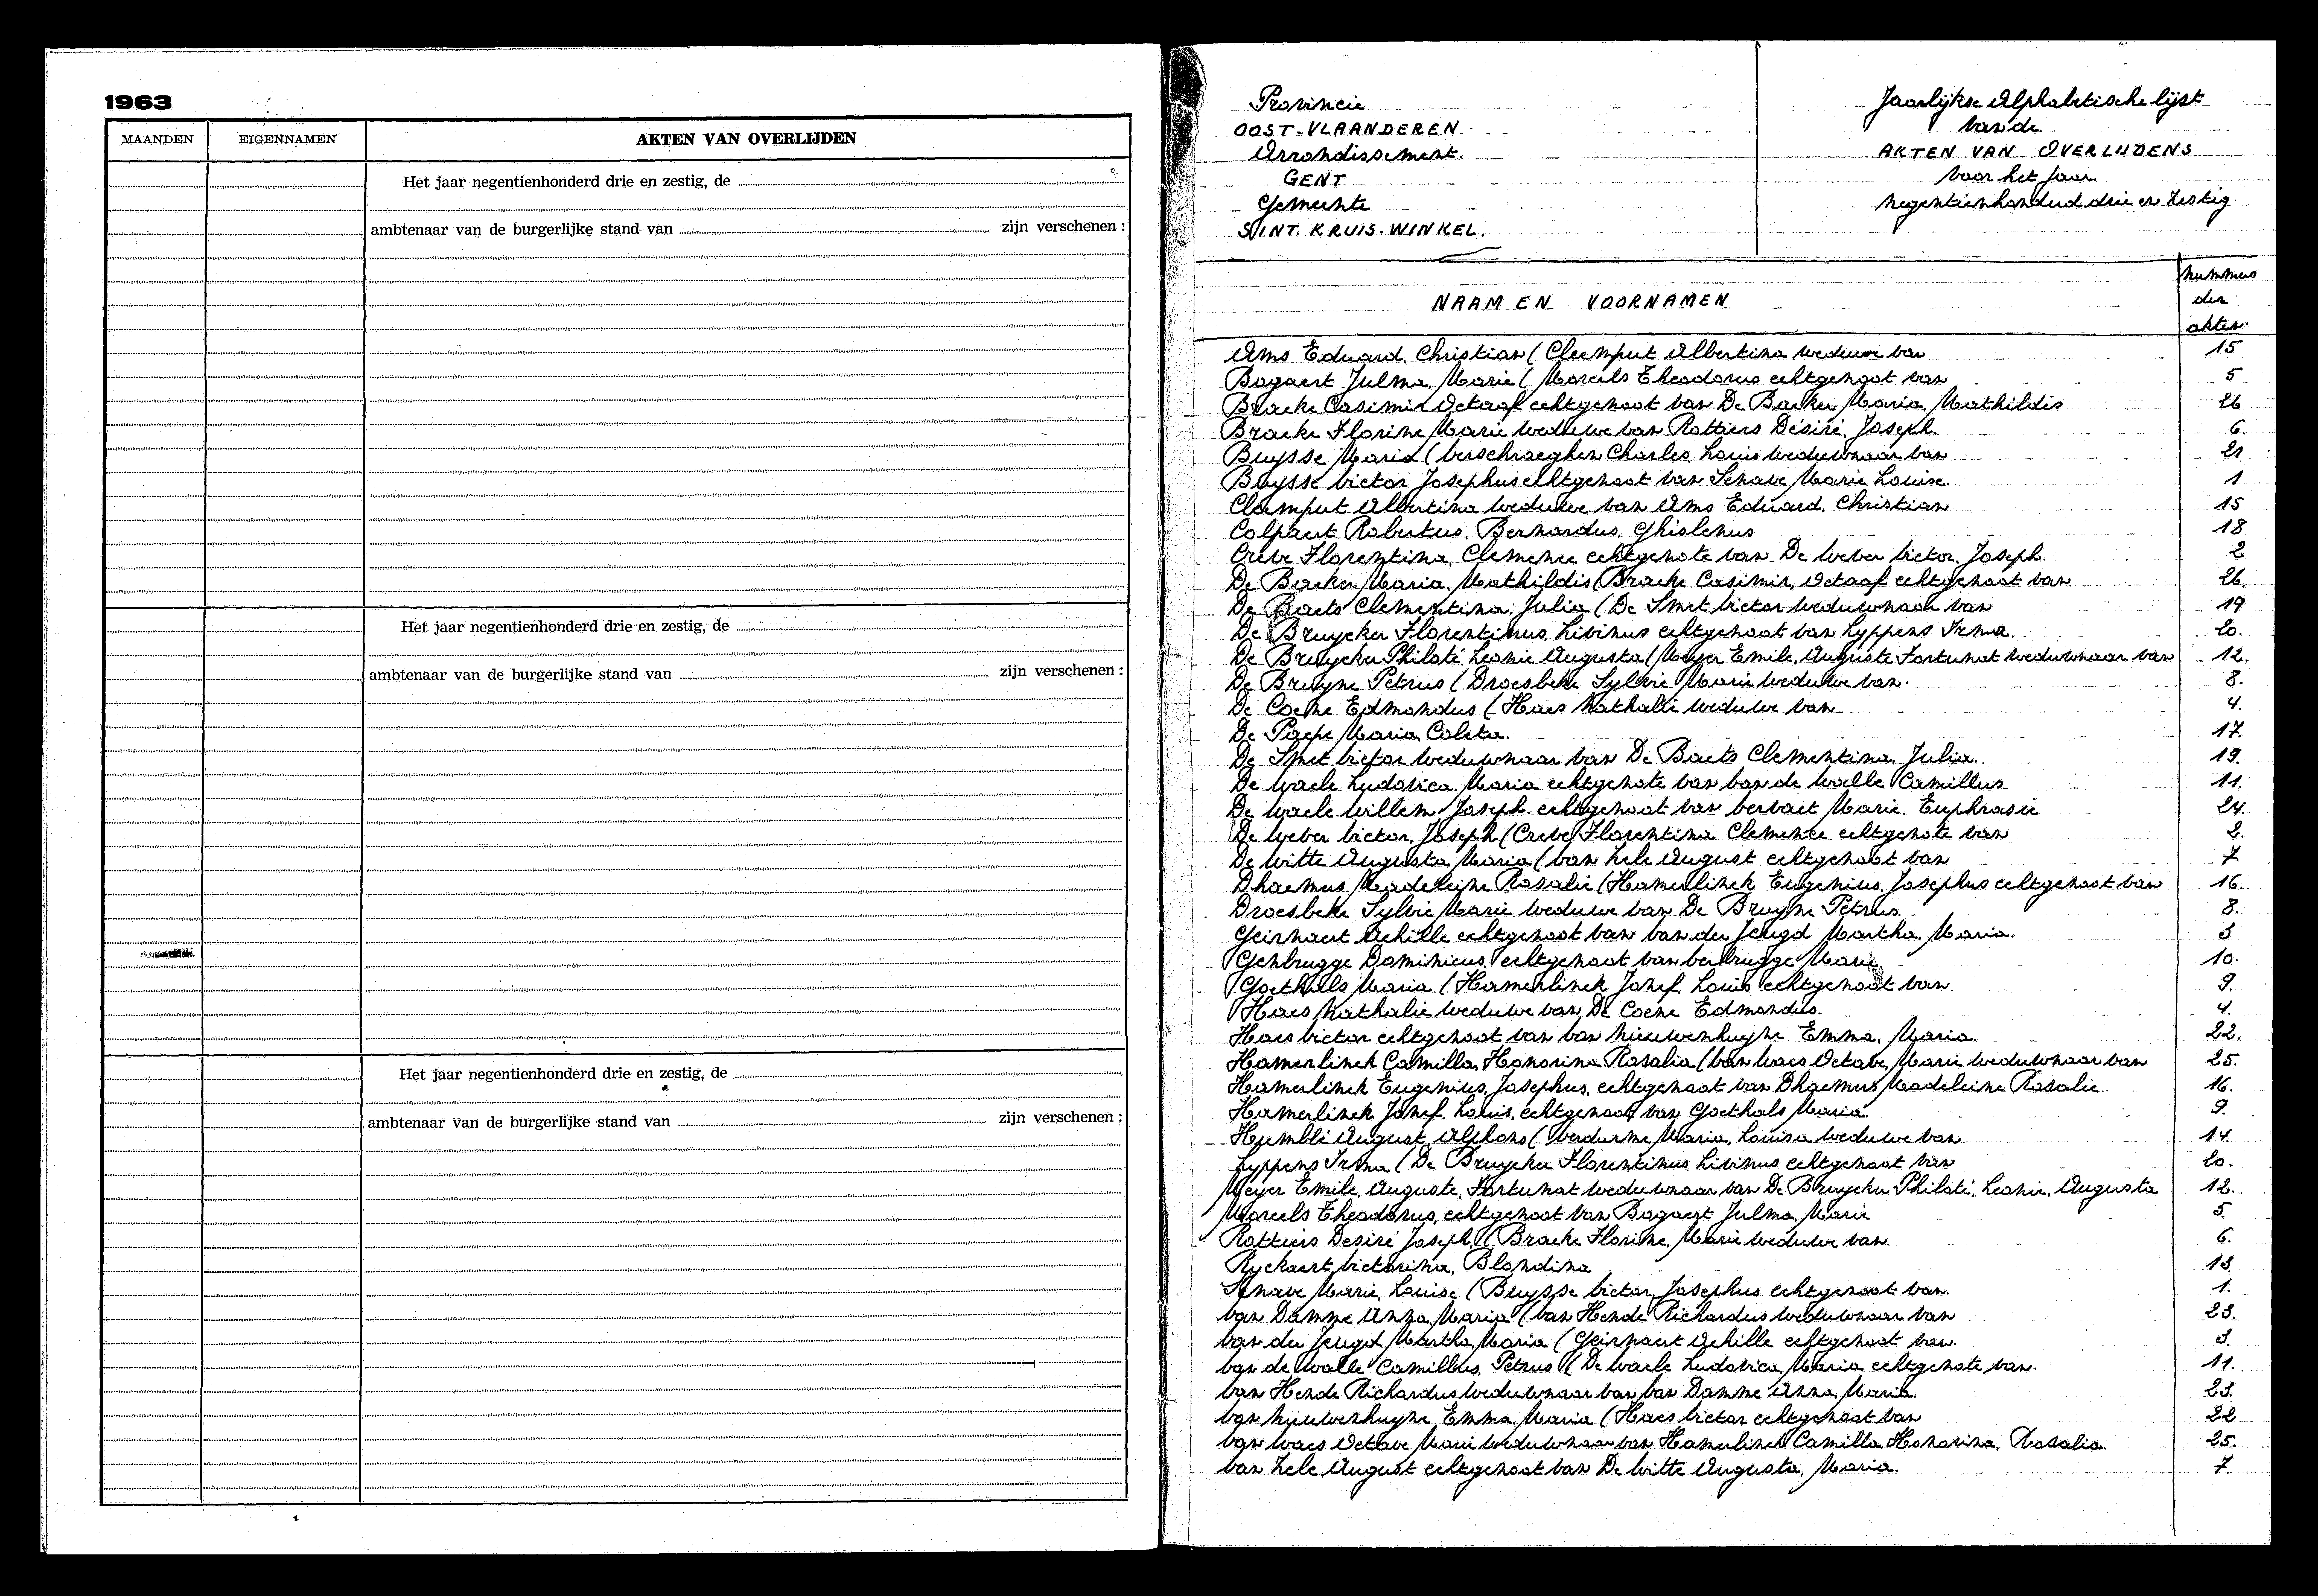 1963
MAANDEN EIGENNAMEN AKTEN VAN OVERLIJDEN
Het jaar negentienhonderd drie en zestig, de
ambtenaar van de burgerlijke stand van zijn verschenen :
Het jaar negentienhonderd drie en zestig, de
ambtenaar van de burgerlijke stand van zijn verschenen :
Het jaar negentienhonderd drie en zestig, de
ambtenaar van de burgerlijke stand van zijn verschenen :
Provincie
OOST-VLAANDEREN
Arrondissement.
GENT
Gemeente
SINT. KRUIS. WINKEL.
Jaarlijkse Alphabetische lijst
van de
AKTEN VAN OVERLIJDENS
voor het jaar
negentienhonderd drie en zestig
NAAM EN VOORNAMEN
nummers
der
akten.
Ams Eduard. Christian ( Cleemput Albertina weduwe van 15
Bogaert Julma, Marie ( Morcels Theodorus echtgenoot van 5
Bracke Casimir Octaaf echtgenoot van De Backer Maria, Mathildis 26
Bracke Florine Marie weduwe van Rottiers Désiré, Joseph. 6.
Buysse Maria ( Verschraeghen Charles Louis weduwnaar van 21
Buysse Victor Josephus echtgenoot van Senave Marie Louise. 1
Cleemput Albertina weduwe van Ams Eduard. Christian 15
Colpaert Robertus, Bernardus, Ghislenus 18
Creve Florentina, Clemence echtgenote van De Weber Victor, Joseph. 2
De Backer Maria, Mathildis ( Bracke Casimir, Octaaf echtgenoot van 26.
De Baets Clementina, Julia ( De Smet Victor weduwnaar van 19
De Bruycker Florentinus, Livinus echtgenoot van Lyppens Irma. 20.
De Bruycker Philoté Leonie Augusta ( Meyer Emile, Auguste Fortunat weduwnaar van 12.
De Bruyne Petrus ( Droesbeke Sylvie Marie weduwe van. 8.
De Coene Edmondus ( Haes Nathalie weduwe van 4.
De Paepe Maria Coleta. 17.
De Smet Victor weduwnaar van De Baets Clementina, Julia. 19.
De Waele Ludovica Maria echtgenote van Van de Walle Camillus 11.
De Waele Willem Joseph. echtgenoot van Vervaet Marie. Euphrasie 24.
De Weber Victor, Joseph ( Creve Florentina Clemence echtgenote van 2.
De Witte Augusta Maria ( Van Hele August echtgenoot van 7
Dhaemers Madeleine Rosalie ( Hamerlinck Eugenius, Josephus echtgenoot van 16.
Droesbeke Sylvie Marie weduwe van De Bruyne Petrus. 8.
Geirnaert Achille echtgenoot van Van der Jeugd Martha Maria. 3
Genbrugge Dominicus, echtgenoot van Verbrugge Marie 10.
Goethals Maria ( Hamerlinck Jozef Louis echtgenoot van 9.
Haes Nathalie weduwe van De Coene Edmondus. 4.
Haes Victor echtgenoot van Van Nieuwenhuyse Emma, Maria. 22.
Hamerlinck Camilla, Honorina Rosalia ( Van Waes Octave, Marie weduwnaar van 25.
Hamerlinck Eugenius, Josephus, echtgenoot van Dhaemers Madeleine Rosalie 16.
Hamerlinck Jozef. Louis, echtgenoot van Goethals Maria. 9.
August Alphons ( Verdurme Maria, Louisa weduwe van 14.
Lyppens Irma ( De Bruycker Florentinus, Livinus echtgenoot van 20.
Meyer Emile, Auguste, Fortunat weduwnaar van De Bruycker Philoté, Leonie, Augusta 12.
Morcels Theodorus, echtgenoot van Bogaert Julma, Marie 5.
Rottiers Desiré Joseph, ( Bracke Florine, Marie weduwe van 6.
Ryckaert Victorina, Blondina 13.
Senave Marie, Louise ( Buysse Victor Josephus echtgenoot van. 1.
Van Damme Anna Maria ( Van Hende Richardus weduwnaar van 23.
Van der Jeugd Martha Maria ( Geirnaert Achille echtgenoot van. 3.
Van de Walle Camillus, Petrus ( De Waele Ludovica, Maria echtgenote van. 11.
Van Hende Richardus weduwnaar van Van Damme Anna, Maria. 23.
Van Nieuwenhuyse Emma, Maria ( Haes Victor echtgenoot van 22
Van Waes Octave Marie weduwnaar van Hamerlinck Camilla, Honorina, Rosalia. 25.
Van Hele August echtgenoot van De Witte Augusta, Maria. 7.